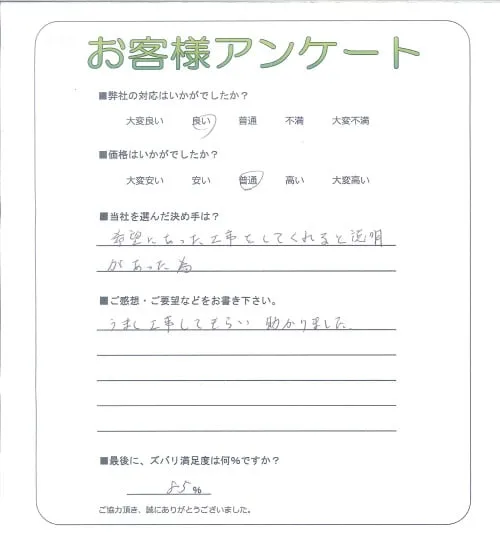 お客様アンケート
■弊社の対応はいかがでしたか？
大変良い 良い 普通 不満 大変不満
■価格はいかがでしたか？
大変安い 安い 普通 高い 大変高い
■当社を選んだ決め手は？
希望にあった工事をしてくれると説明
があった為
■ご感想・ご要望などをお書き下さい。
工事してもらい 助かりました
■最後に、ズバリ満足度は何%ですか？
85%
ご協力頂き、誠にありがとうございました。